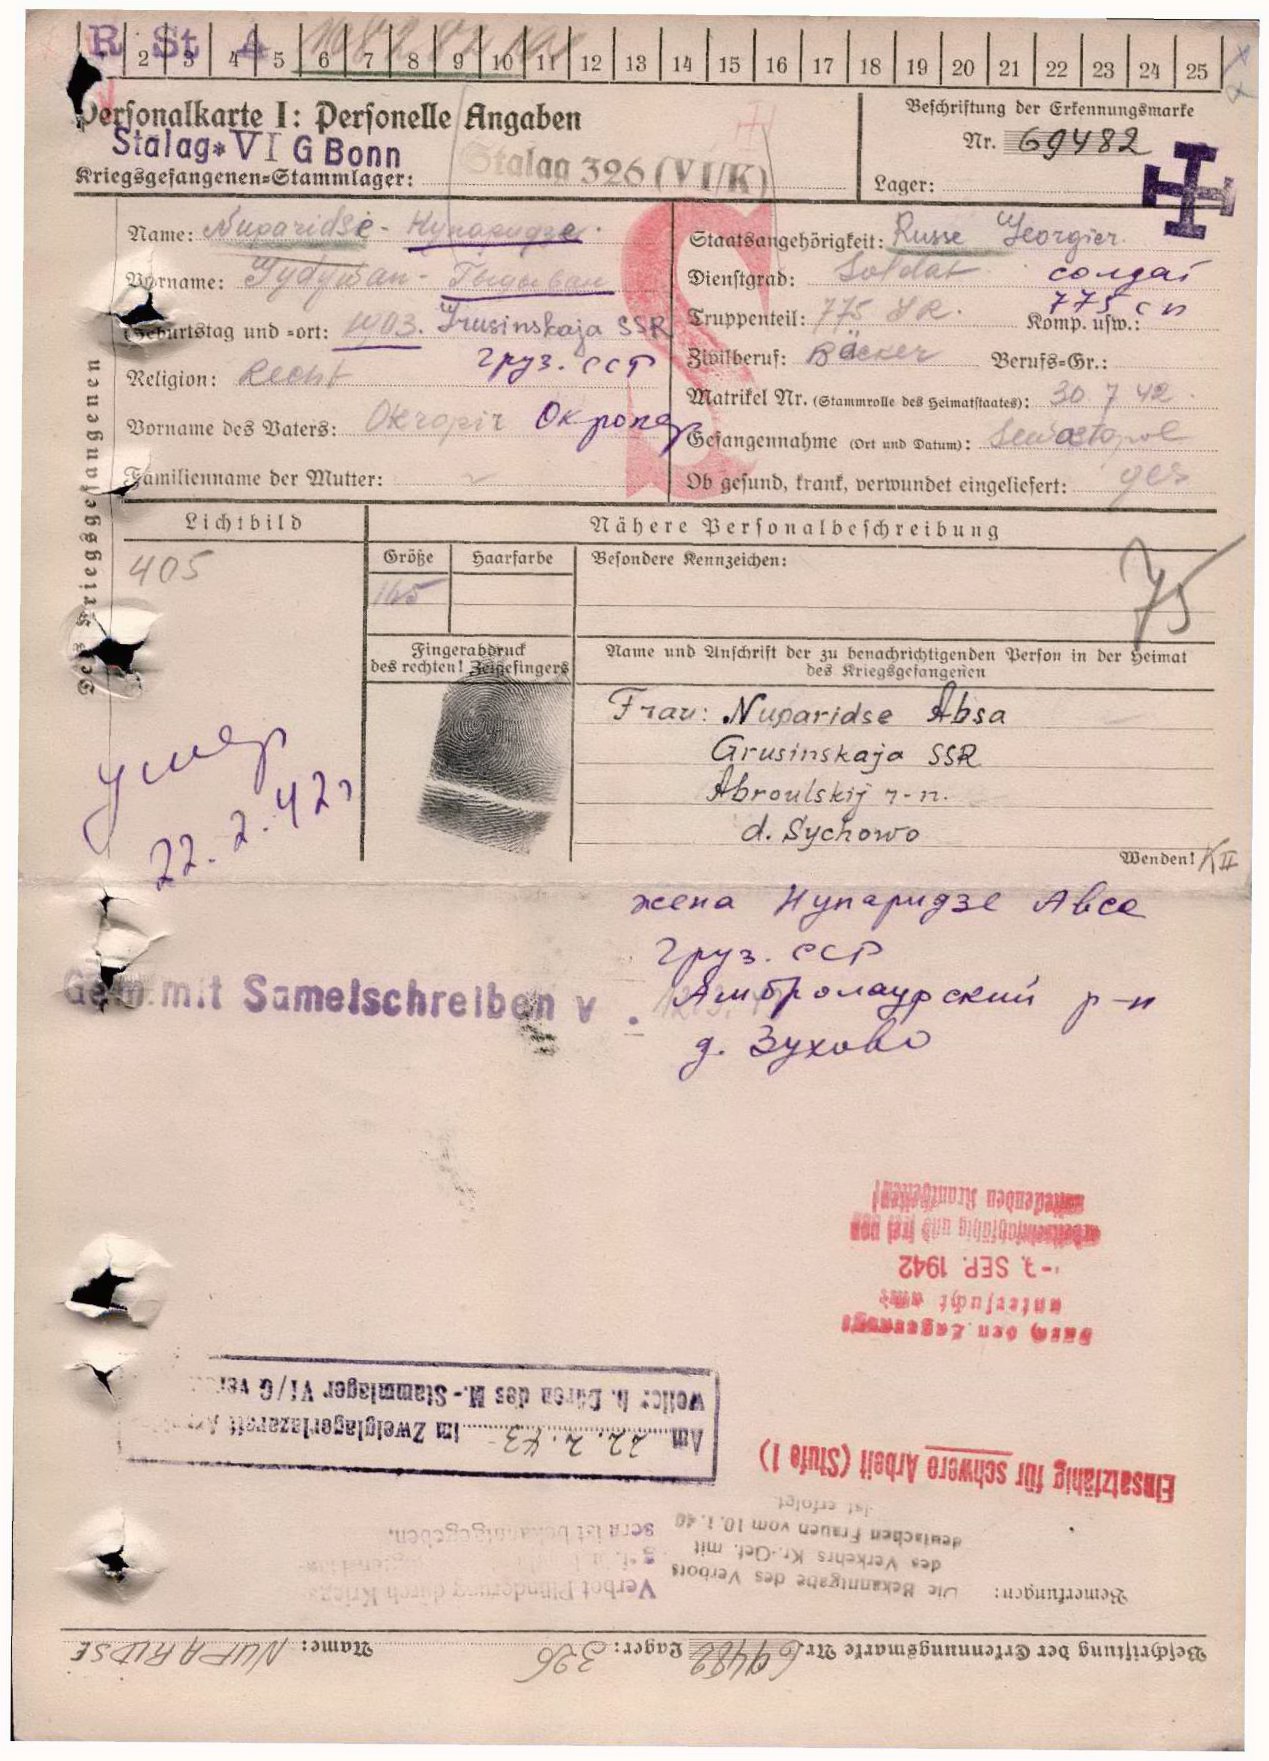 R St A
2 3 4 5 6 7 8 9 10 11 12 13 14 15 16 17 18 19 20 21 22 23 24 25
Personalkarte I: Personelle Angaben
Stalag VI G Bonn
Stalag 326 (VI/K)
Kriegsgefangenen=Stammlager:
Beschriftung der Erkennungsmarke
Nr. 69482
Lager:
Name: Nuparidse - Нупаридзе
Vorname:
Geburtstag und =ort: 1903. Grusinskaja SSR
груз. сср
Religion: Recht
Vorname des Vaters: Okropir Окропер
Familienname der Mutter:
Staatsangehörigkeit: Russe Georgier
Dienstgrad: Soldat солдат
Truppenteil: 775 775 сп Komp. usw.:
Zivilberuf: Bäcker Berufs=Gr.:
Matrikel Nr. (Stammrolle des Heimatstaates): 30 7 42
Gefangennahme (Ort und Datum): Sewastopol
Ob gesund, krank, verwundet eingeliefert: ges
Des Kriegsgefangenen
Lichtbild
405
Nähere Personalbeschreibung
Größe Haarfarbe Besondere Kennzeichen:
165
75
Fingerabdruck
des rechten! Zeigefingers
Name und Anschrift der zu benachrichtigenden Person in der Heimat
des Kriegsgefangenen
Frau: Nuparidse Absa
Grusinskaja SSR
Abroulskij r-n.
d. Sychowo
Wenden! K II
умер
22.2.42г
жена Нупаридзе Авса
груз. сср
Амбролаурский р-н
д. Зухово
Gem. mit Samelschreiben v.
ansteckenden Krankheiten!
arbeitseinsatzfähig und frei von
-7. SEP. 1942
untersucht am:
Durch den Lagerarzt
Einsatzfähig für schwere Arbeit (Stufe I)
Am 22.2.43 im Zweiglagerlazarett
weiler b. Düren des M.-Stammlager VI/G
Bemerkungen: Die Bekanntgabe des Verbots
des Verkehrs Kr.-Gef. mit
deutschen Frauen vom 10.1.40
ist erfolgt.
Verbot Plünderung durch Kriegs
sern ist bekanntgegeben.
Beschriftung der Erkennungsmarke Nr. 69482 Lager: 326 Name: NUPARIDSE